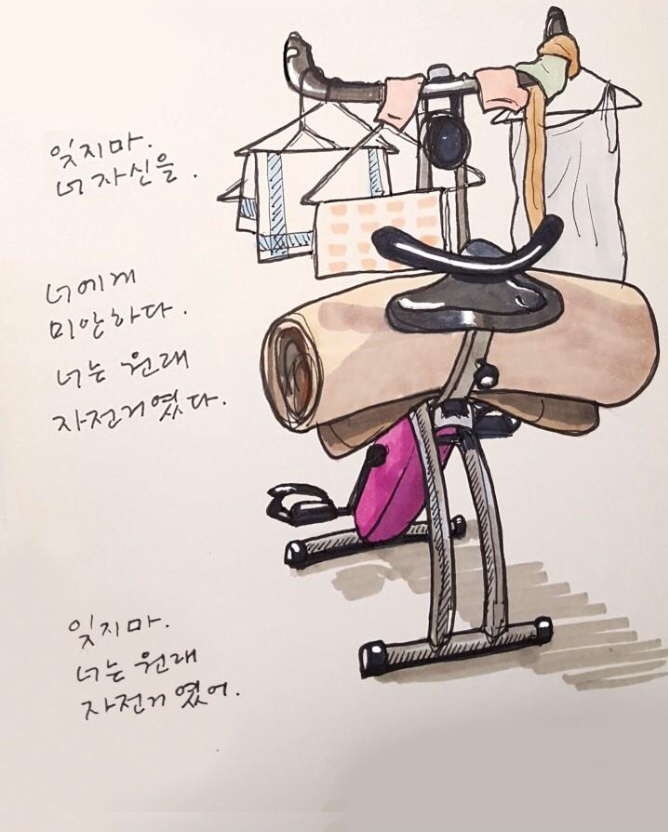 잊지마.
너 자신을.
너에게
미안하다.
너는 원래
자전거였다.
잊지마.
너는 원래
자전거였어.